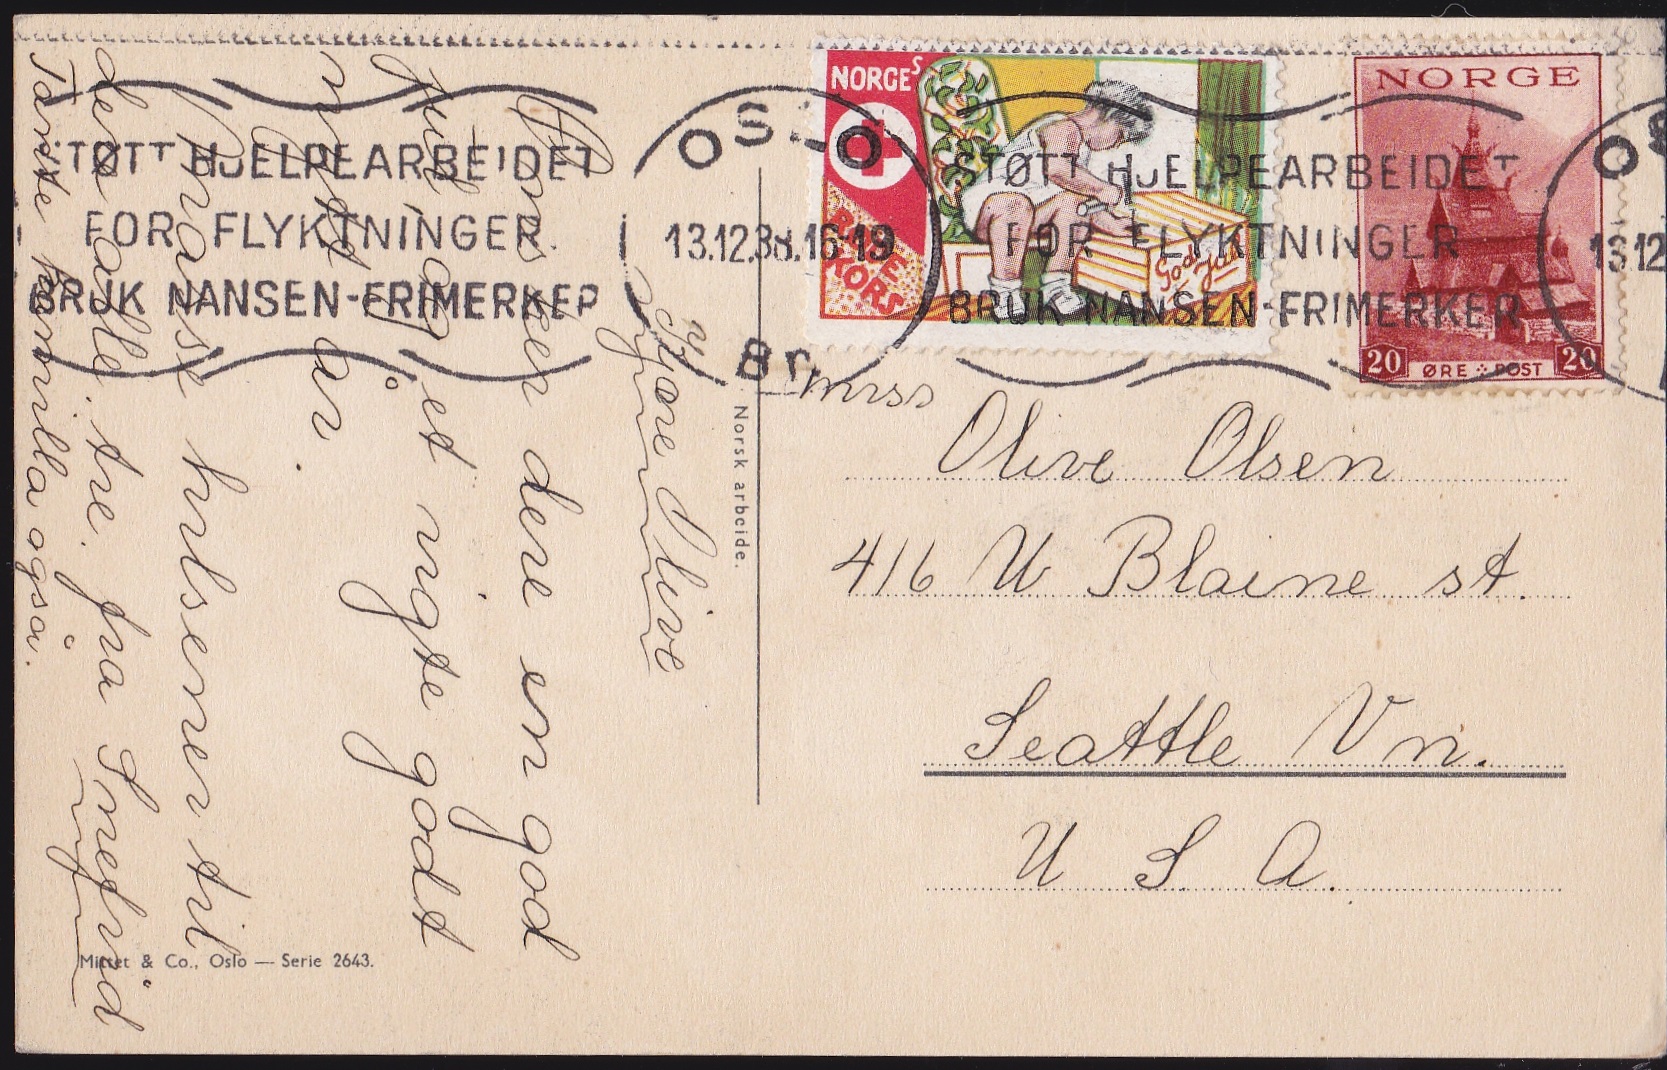 Kjære Olive
Ønsker dere en god
jul og et rigte godt
nytt år.
Masse hilsener til
dere alle tre. fra Snefrid
Tante Pernilla også.
Norsk arbeide.
Mittet & Co., Oslo — Serie 2643.
STØTT HJELPEARBEIDET
FOR FLYKTNINGER
BRUK NANSEN-FRIMERKER
OSLO
13.12.38.16-19
Br.
NORGES
RØDE
KORS
God Jul
STØTT HJELPEARBEIDET
FOR FLYKTNINGER
BRUK NANSEN-FRIMERKER
NORGE
20 ØRE POST 20
OS
13 12
miss
Olive Olsen
416 W Blaine st.
Seattle Vn.
U S A.